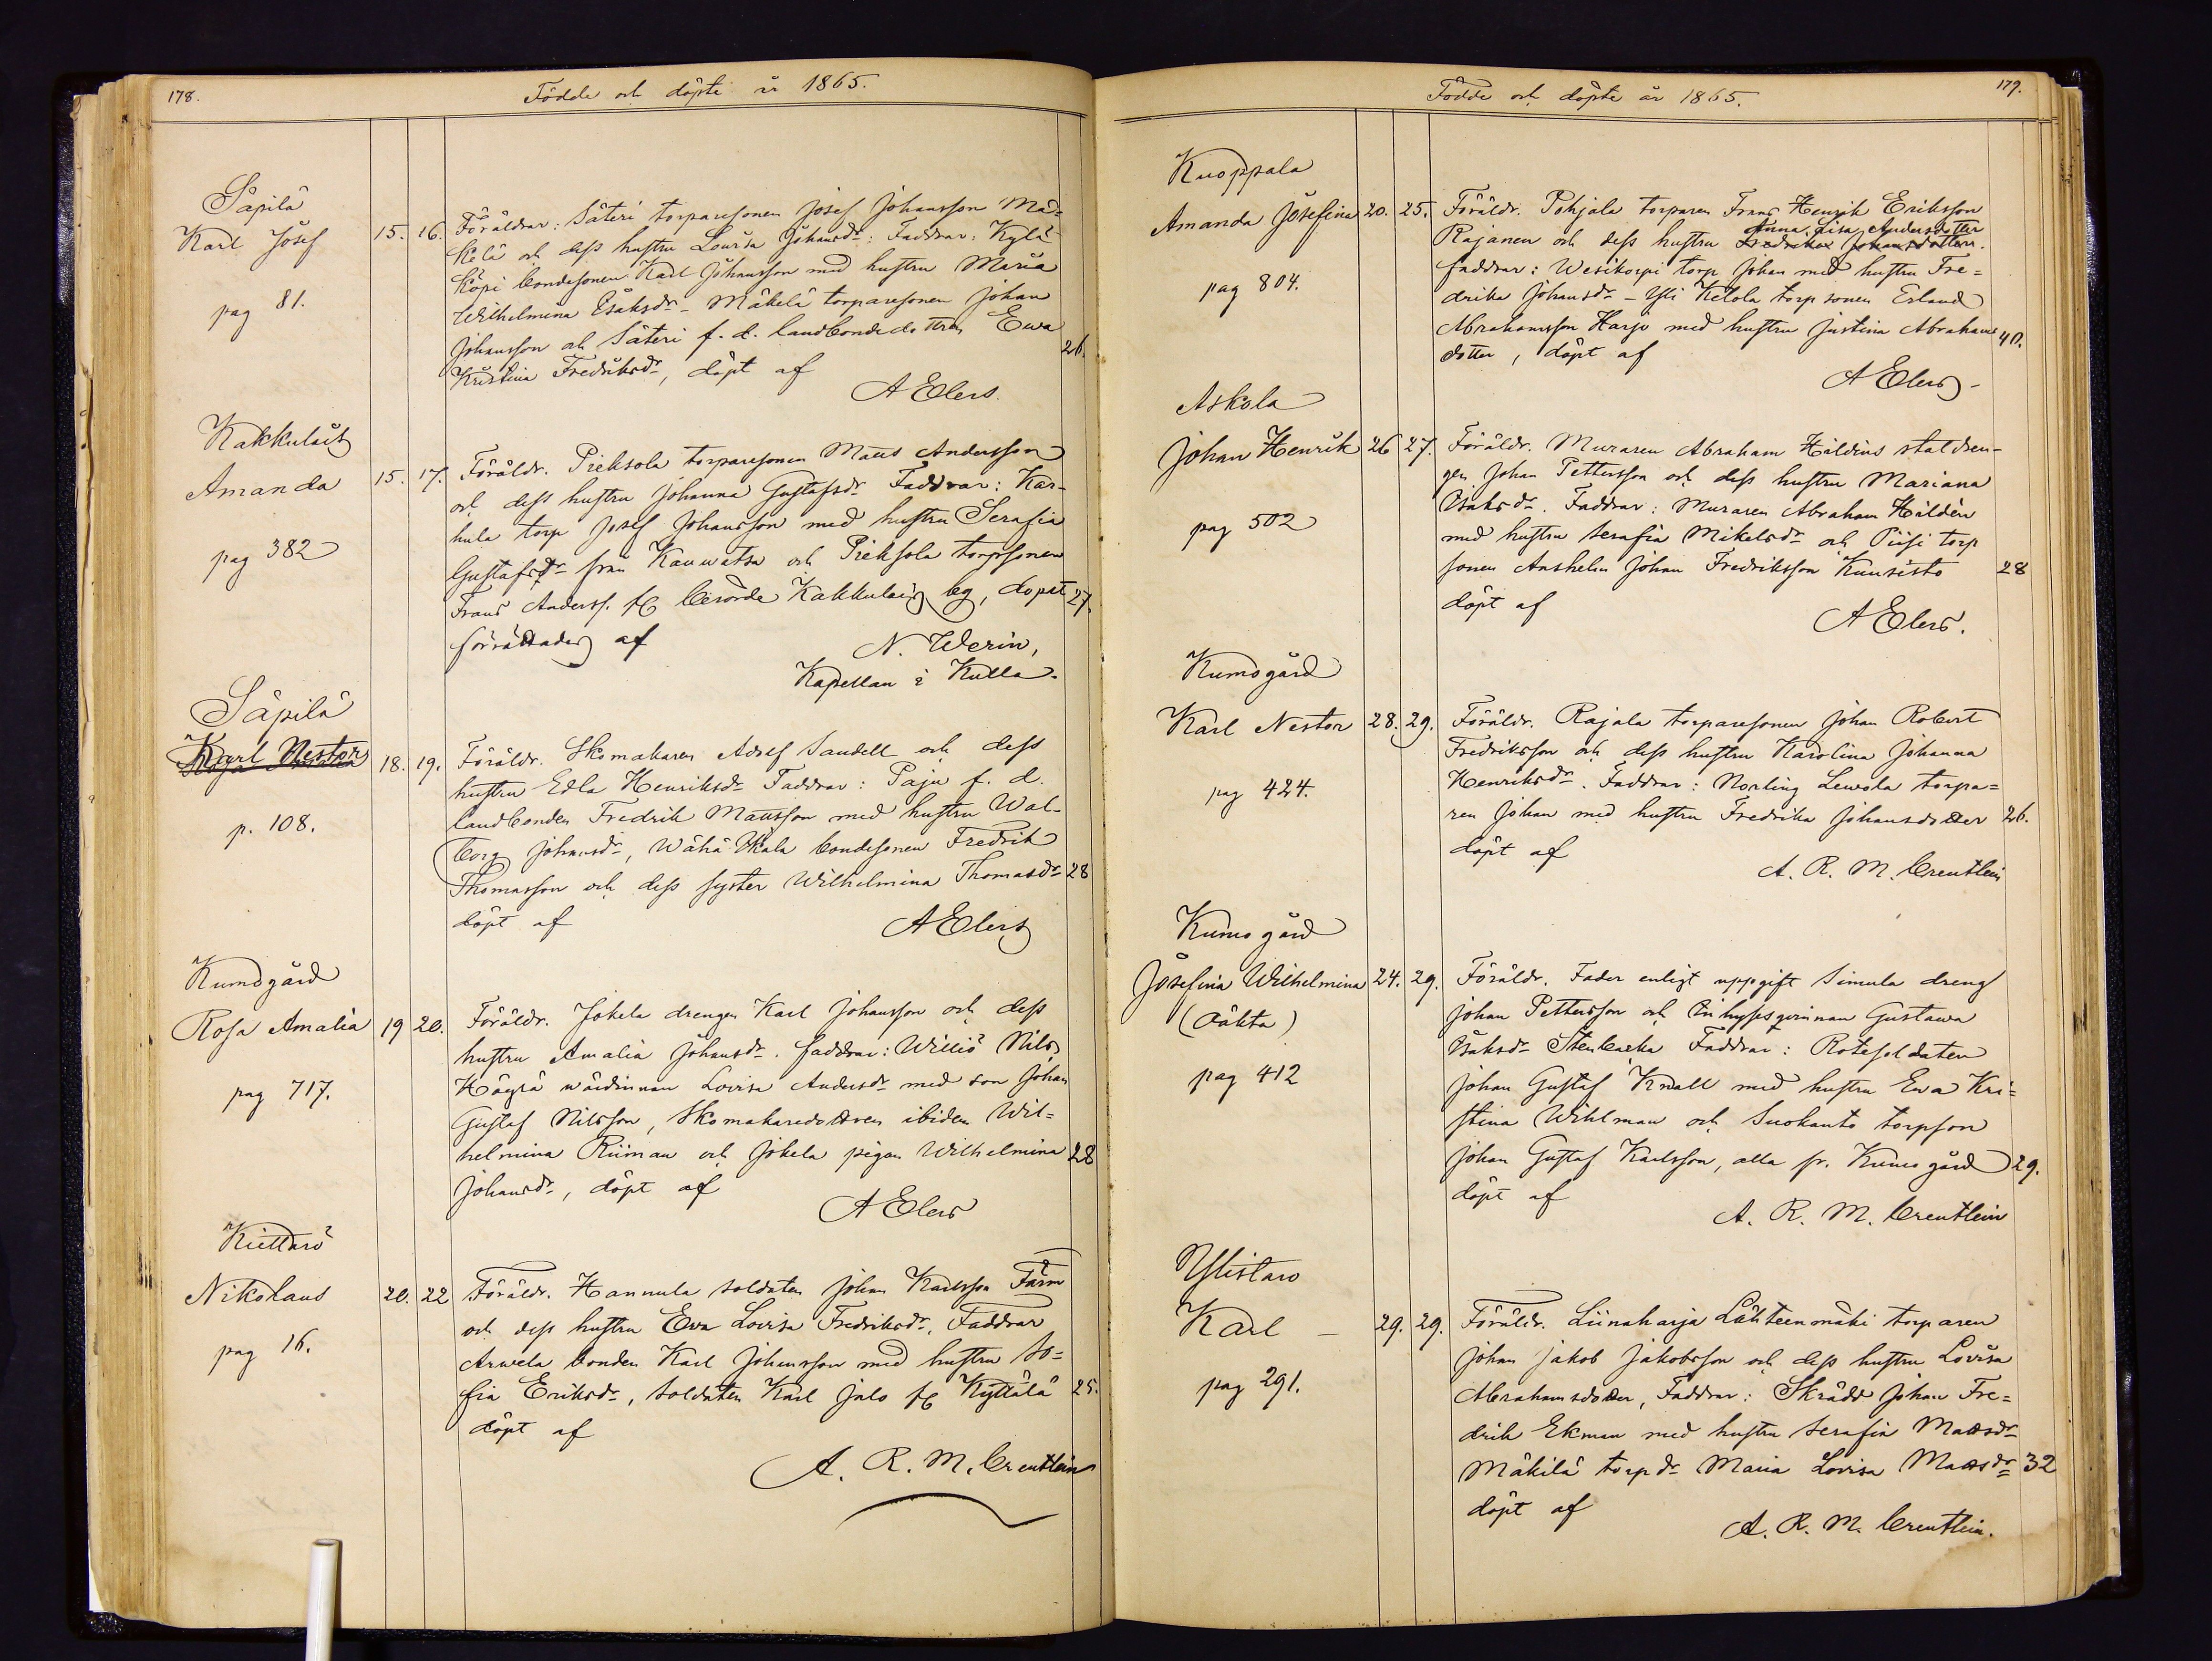 178.
Födde och döpte år 1865.
Säpilä
Karl Josef 15. 16. Föräldrar: Säteri torparesonen Josef Johansson Mä-
kelä och dess hustru Lovisa Johansdr: Faddrar: Kylä
Köpi bondesonen Karl Johansson med hustru Maria
pag 81.
Wilhelmina Isaksdr - Mäkelä torparesonen Johan
Johansson och Säteri f. d. landbondedottren Ewa
Kristina Fredriksdr, döpt af 26.
A Elers.
Kakkulais
Amanda 15. 17. Föräldr. Pieksola torparesonen Matts Andersson
och dess hustru Johanna Gustafsdr Faddrar: Kar-
hula torp Josef Johansson med hustru Serafia
pag 382
Gustafsdr från Kauwatsa och Pieksola torpsonen
Frans Anderss. fr berörde Kakkulais by, dopet 27.
förrättades af
N. Werin,
Kapellan i Kulla.
Säpilä
Karl Nestor 18. 19. Föräldr. Skomakaren Adolf Sandell och dess
hustru Edla Henriksdr Faddrar: Paju f. d.
p. 108.
landbonden Fredrik Mattsson med hustru Wal-
borg Johansdr, Wähä Ukala bondesonen Fredrik
Thomasson och dess syster Wilhelmina Thomasdr 28
döpt af
A Elers
Kumogård
Rosa Amalia 19 20. Föräldr. Jokela drengen Karl Johansson och dess
hustru Amalia Johansdr. faddrar: Williö Nils
pag 717.
Hägrä wärdinnan Lovisa Andersdr med son Johan
Gustaf Nilsson, Skomakaredottren ibidem Wil=
helmina Riiman och Jokela pigan Wilhelmina 28
Johansdr, döpt af
A Elers
Kiettarö
Nikolaus 20. 22 Föräldr. Hannula soldaten Johan Karlsson Färm
och dess hustru Eva Lovisa Fredriksdr. Faddrar
pag 16.
Arwela bonden Karl Johansson med hustru So=
fia Eriksdr, soldaten Karl Jalo fr Kyttälä 25.
döpt af
A. R. M. Creutlein
Födde och döpte år 1865.
179.
Kuoppala
Amanda Josefina 20. 25. Föräldr. Pohjala torparen Frans Henrik Eriksson
Anna Lisa Andersdotter
Rajanen och dess hustru Fredrika Johansdotter.
faddrar: Wesikorpi torp Johan med hustru Fre=
pag 804.
drika Johansdr - Yli Ketola torp sonen Erland
Abrahamsson Harju med hustru Justina Abrahams 40.
dotter, döpt af
A Elers -
Askola
Johan Henrik 26 27. Föräldr. Muraren Abraham Hildéns staldren-
gen Johan Pettersson och dess hustru Mariana
Isaksdr. Faddrar: Muraren Abraham Hildén
pag 502
med hustru Serafia Mikelsdr och Piisi torp
sonen Anshelm Johan Fredriksson Kuusisto 28
döpt af
A Elers.
Kumogård
Karl Nestor 28. 29. Föräldr. Rajala torparesonen Johan Robert
Fredriksson och dess hustru Karolina Johanna
pag 424.
Henriksdr. Faddrar: Norling Lewola torpa=
ren Johan med hustru Fredrika Johansdotter 26.
döpt af
A. R. M. Creutlein
Kumo gård
Josefina Wilhelmina 24. 29. Föräldr. Fader enligt uppgift Simula dreng
(oäkta)
Johan Pettersson och Inhyseqvinnan Gustawa
Isaksdr Stenbacka Faddrar: Rotesoldaten
pag 412
Johan Gustaf Knall med hustru Eva Kri=
stina Wihlman och Suokanto torpson
Johan Gustaf Karlsson, alla fr. Kumo gård 29.
döpt af
A. R. M. Creutlein
Ylistaro
Karl - 29. 29. Föräldr. Liinaharja Lähteenmäki torparen
Johan Jakob Jakobsson och dess hustru Lovisa
pag 291.
Abrahamsdotter, Faddrar: Skrädd Johan Fre=
drik Ekman med hustru Serafia Mattsdr
Mäkilä torp dr Maria Lovisa Mattsdr 32
döpt af
A. R. M. Creutlein.